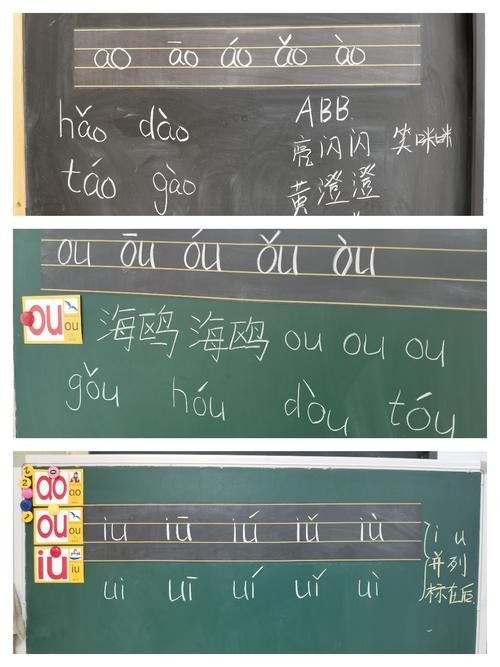 ao āo áo ǎo ào
hǎo dào
táo gào
ABB.
亮闪闪 笑咪咪
黄澄澄
ou ōu óu ǒu òu
ou ou
海鸥 海鸥 ou ou ou
gǒu hóu dòu tóu
ao ao
ou ou
iu iu
iu iū iú iǔ iù
ui uī uí uǐ uì
i u
并列
标在后